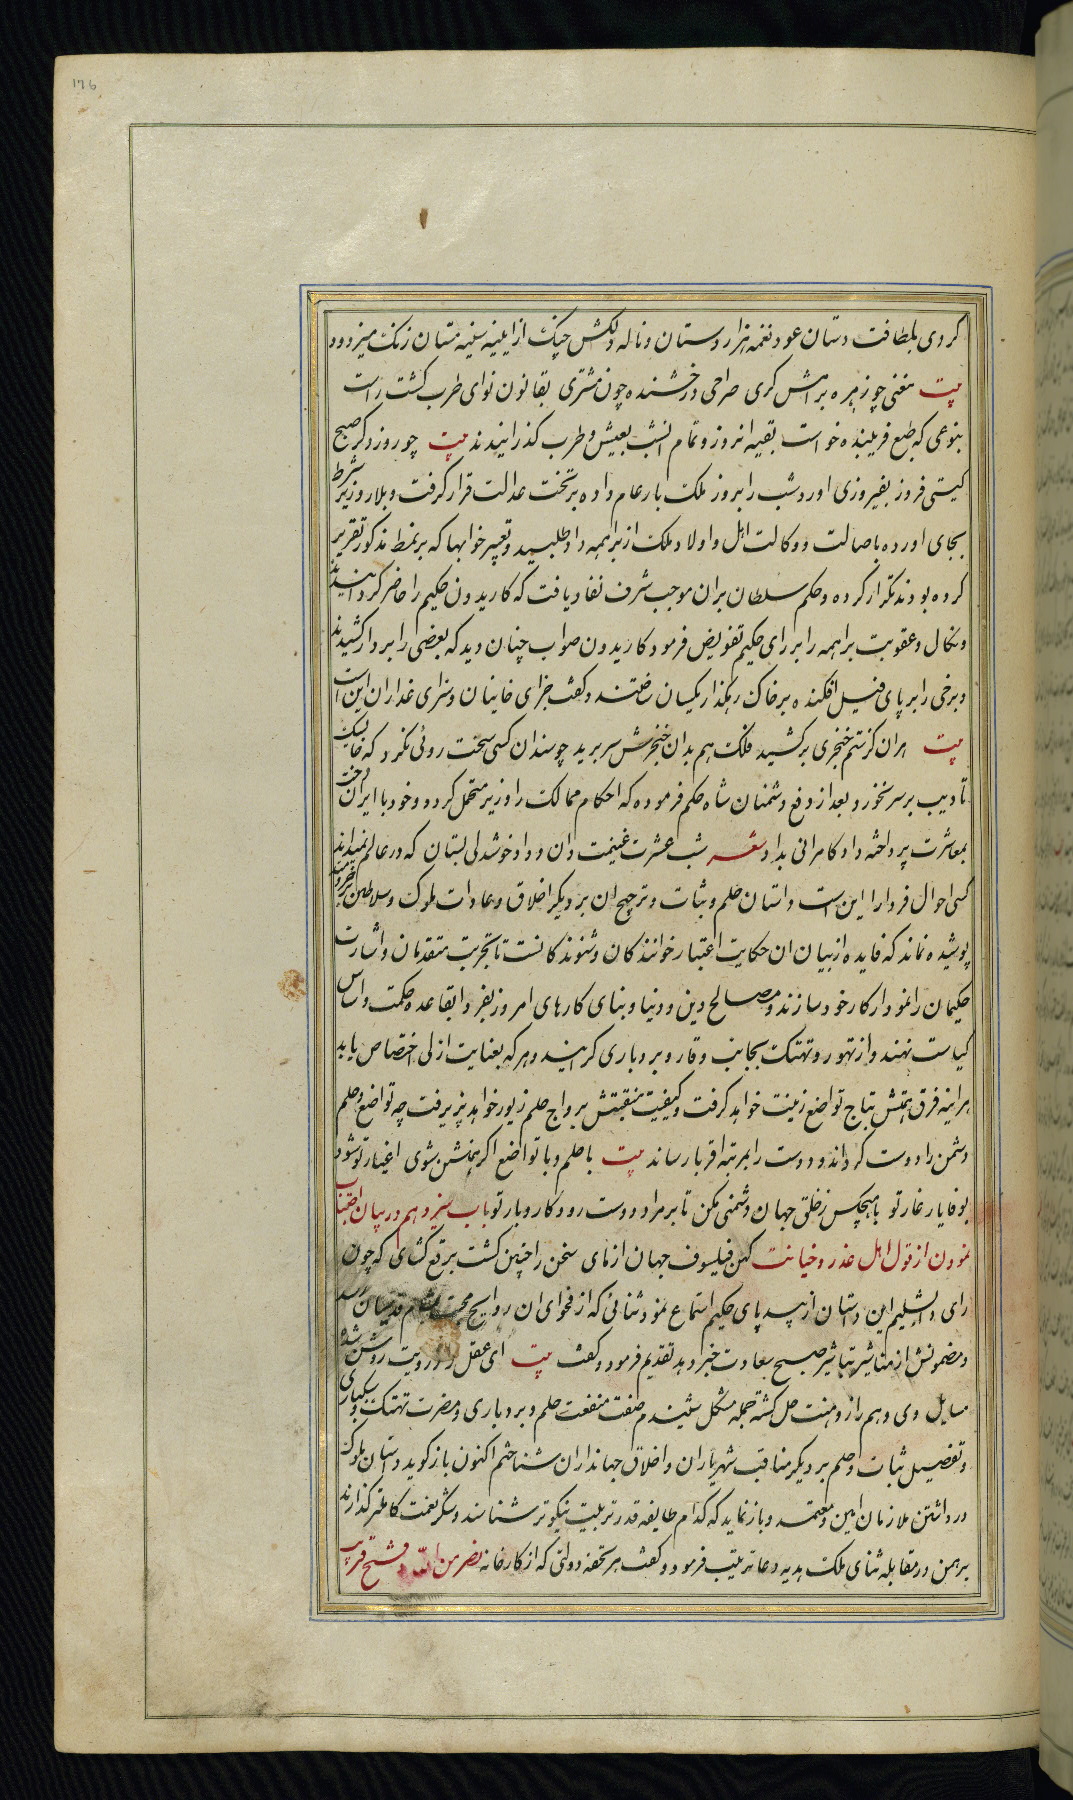 176
کردی بلطافت دستان عود نغمه هزار دستان و ناله دلکش چنک از اینیه سینه مستان زنک میزدود
بیت مغنی چو زهره برامش کری صراحی درخشنده چون مشتری بقانون نوای طرب کشت راست
بنوعی که طبع فریبنده خواست بقیه انروز و تمام انشب بعیش و طرب کذرانیدند بیت چو روز دکر صبح
کیتی فروز بفیروزی اورد شب را بروز ملک بار عام داده بر تخت عدالت قرار کرفت و بلار وزیر شرط
بجای اورده باصالت و وکالت اهل و اولاد ملک از براهمه داد طلبید و تعبیر خوابها که بر نمط مذکور تقریر
کرده بودند تکرار کرده و حکم سلطان بران موجب شرف نفاذ یافت که کاریدون حکیم را حاضر کردانیدند
و نکال و عقوبت براهمه را بر رای حکیم تفویض فرمود کاریدون صواب چنان دید که بعضی را بر دار کشیدند
و برخی را بر پای فیل افکنده بر خاک رهکذار یکسان ساختند و کفت جزای خاینان و سزای غداران این است
بیت هران کز ستم خنجری برکشید فلک هم بدان خنجرش سر برید چو سندان کسی سخت روئی نکرد که خایسک
تادیب بر سر نخورد بعد از دفع دشمنان شاه حکم فرموده که احکام ممالک را وزیر متحمل کردد و خود با ایران دخت
بمعاشرت پرداخته داد کامرانی بداد شعر شب عشرت غنیمت دان و داد خوشدلی بستان که در عالم نمیداند
کسی احوال فردا را این است داستان حلم و ثبات و ترجیح ان بر دیکر اخلاق و عادات ملوک و سلاطین و بر خردمند
پوشیده نماند که فایده از بیان ان حکایت اعتبار خوانندکان و شنوندکانست تا تجربت متقدمان و اشارت
حکیمان را نمودار کار خود سازند و مصالح دین و دنیا و بنای کارهای امروز بفردا بقاعده حکمت و اساس
کیاست نهند و از تهور و تهتک بجانب وقار و بردباری کرایند و هر که بعنایت ازلی اختصاص یابد
هراینه فرق همتش بتاج تواضع زینت خواهد کرفت و کیفیت منقبتش برواج حلم زیور خواهد پذیرفت چه تواضع و حلم
دشمن را دوست کرداند و دوست را بمرتبه اقربا رساند بیت با حلم و با تواضع اکر همنشین شوی اغیار تو شود
بوفا یار غار تو با هیچکس ز خلق جهان دشمنی مکن تا بر مراد دوست رود کار و بار تو باب سیزدهم در بیان اجتناب
نمودن از قول اهل غدر و خیانت کهن فیلسوف جهان ازمای سخن را چنین کشت برقع کشای که چون
رای دابشلیم این داستان از بیدپای حکیم استماع نمود ثنائی که از فحوای ان روایح محبت بمشام قدسیان رسد
و مضمونش از مناشیر تباشیر صبح سعادت خبر دهد تقدیم فرمود و کفت بیت ای عقل را ز رویت روشن شده
مسایل وی وهم را ز ذهنت حل کشته جمله مشکل شنیدم صفت منفعت حلم و بردباری و مضرت تهتک و سبکباری
و تفضیل ثبات و حلم بر دیکر مناقب شهریاران و اخلاق جهانداران شناختم اکنون بازکوید داستان ملوک
در داشتن ملازمان امین و معتمد و باز نماید که کدام طایفه قدر تربیت نیکوتر شناسند و شکر نعمت کاملتر کذارند
برهمن در مقابله ثنای ملک هدیه دعا ترتیب فرمود و کفت هر تحفه دولتی که از کارخانه نصر من الله و فتح قریب